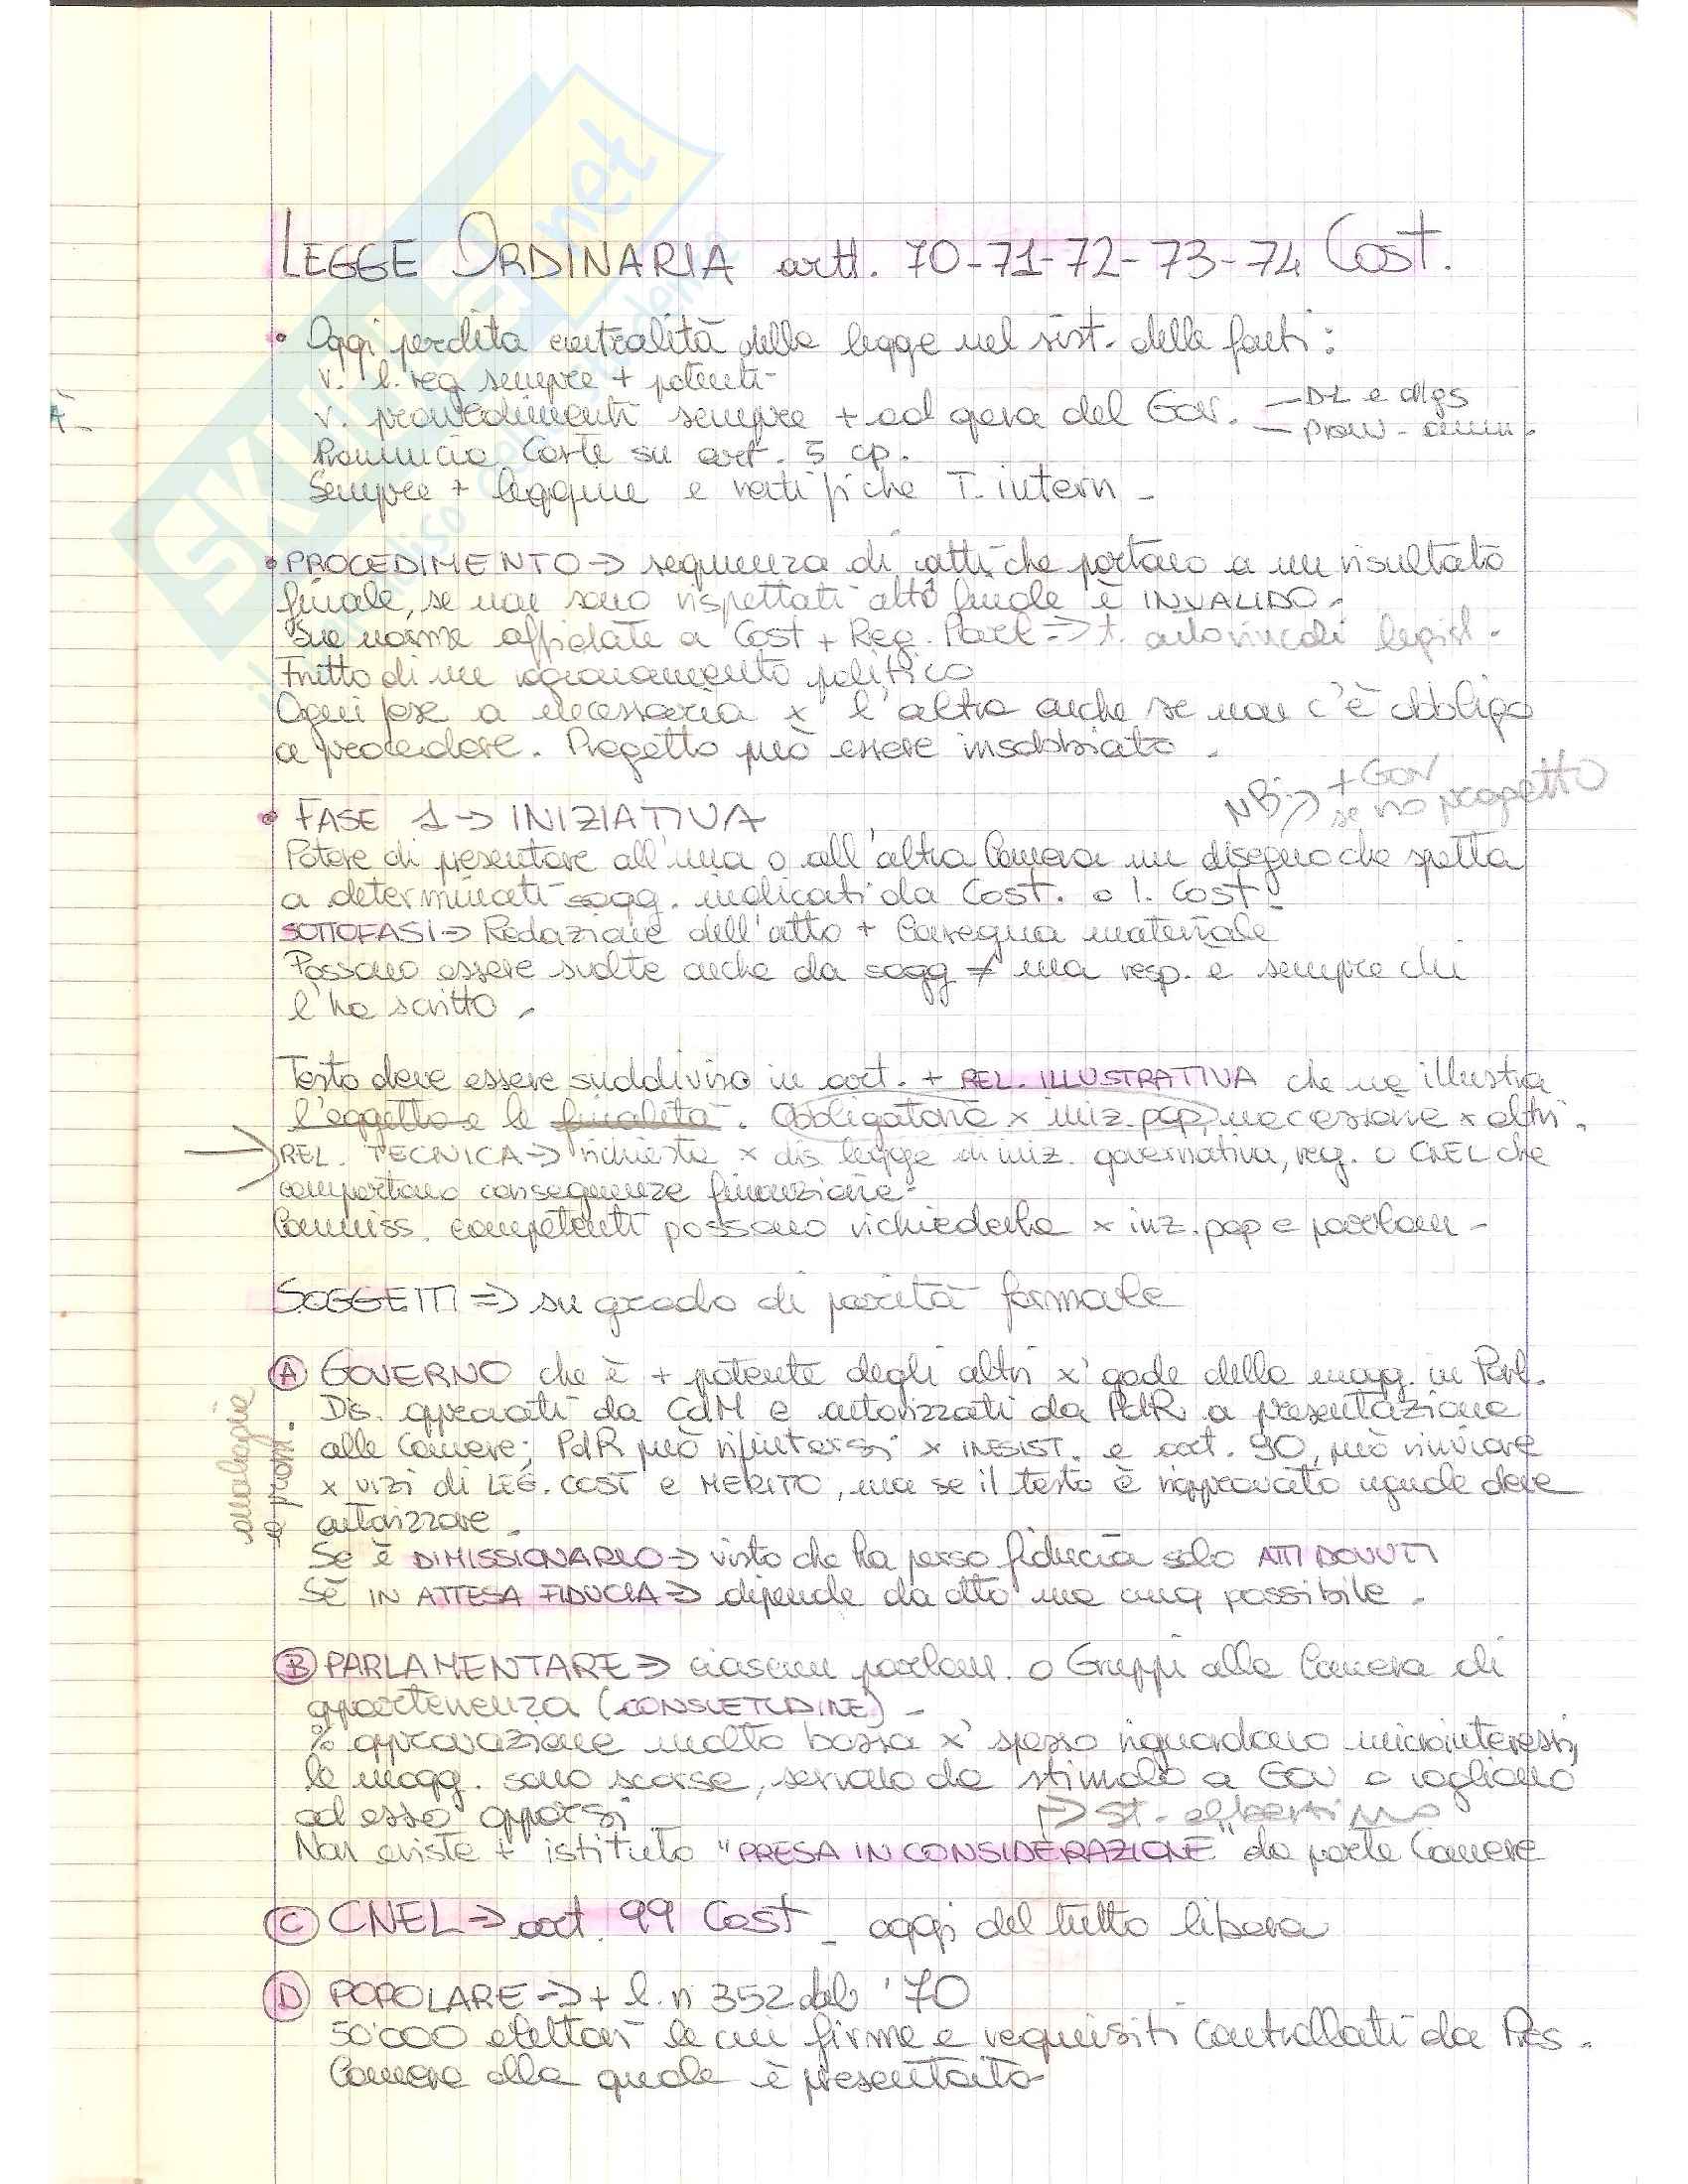 LEGGE ORDINARIA artt. 70-71-72-73-74 Cost.
• Oggi perdita centralità della legge nel sist. delle fonti:
v. l. reg sempre + potenti
v. provvedimenti sempre + ad opera del Gov. — DL e dlgs
— provv. amm.
Pronuncia Corte su art. 5 cp.
Sempre + leggine e ratifiche T. intern -
• PROCEDIMENTO → sequenza di atti che portano a un risultato
finale, se non sono rispettati atto finale è INVALIDO.
Sue norme affidate a Cost + Reg. Parl => autovincoli legisl.
Frutto di un ragionamento politico
Ogni fase a necessaria x l'altra anche se non c'è obbligo
a procedere. Progetto può essere insabbiato.
NB → + Gov
se no progetto
• FASE 1 → INIZIATIVA
Potere di presentare all'una o all'altra Camera un disegno che spetta
a determinati sogg. indicati da Cost. o l. Cost.
SOTTOFASI → Redazione dell'atto + Consegna materiale
Possono essere svolte anche da sogg ≠ ma resp. e sempre chi
l'ha scritto.
Testo deve essere suddiviso in art. + REL. ILLUSTRATIVA che ne illustra
l'oggetto e le finalità. Obbligatoria x iniz. pop,
REL. TECNICA → richiesta x dis. legge di iniz. governativa, reg. o CNEL che
comportano conseguenze finanziarie.
Commiss. competenti possono richiederla x iniz. pop e parlam -
SOGGETTI => su grado di parità formale
analogia
a prom.
A GOVERNO che è + potente degli altri x' gode della magg. in Parl.
Dis. approvati da CdM e autorizzati da PdR a presentazione
alle Camere; PdR può rifiutarsi x INESIST. e art. 90, può rinviare
x vizi di LEG. COST e MERITO, ma se il testo è riapprovato uguale deve
autorizzare.
Se è DIMISSIONARIO → visto che ha perso fiducia solo ATTI DOVUTI
Se IN ATTESA FIDUCIA → dipende da atto ma cmq possibile.
B PARLAMENTARE → ciascun parlam. o Gruppi alla Camera di
appartenenza (CONSUETUDINE) -
% approvazione molto bassa x' spesso riguardano microinteressi,
le magg. sono scarse, servono da stimolo a Gov o vogliono
ad esso opporsi
→ St. albertino
Non esiste + istituto "PRESA IN CONSIDERAZIONE" da parte Camere
C CNEL → art. 99 Cost - oggi del tutto libera
D POPOLARE → + l. n 352 del '70
50'000 elettori le cui firme e requisiti controllati da Pres.
Camera alla quale è presentato